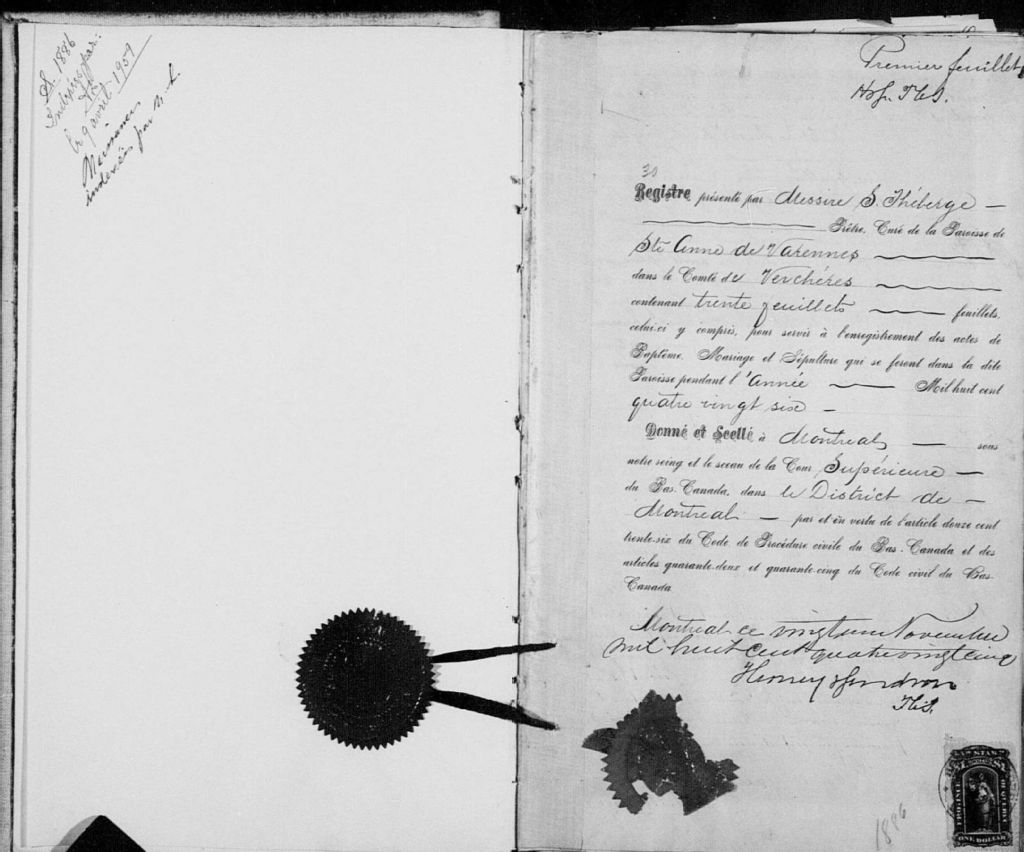 S. 1886
Indexés par:
le 9 avril 1957
Naissances
indexées par
Premier feuillet
30
Registre présenté par Messire S. Théberge —
Prêtre, Curé de la Paroisse de
Ste Anne de Varennes
dans le Comté de Verchères
contenant trente feuillets — feuillets,
celui-ci y compris, pour servir à l'enregistrement des actes de
Baptême, Mariage et Sépulture qui se feront dans la dite
Paroisse pendant l'Année — Mil huit cent
quatre vingt six —
Donné et Scellé à Montreal — sous
notre seing et le sceau de la Cour Supérieure —
du Bas-Canada, dans le District de —
Montreal — par et en vertu de l'article douze cent
trente-six du Code de Procédure civile du Bas-Canada et des
articles quarante-deux et quarante-cinq du Code civil du Bas-
Canada
Montreal ce vingt une Novembre
mil huit cent quatre vingt cinq
1886
PROVINCE
ONE DOLLAR